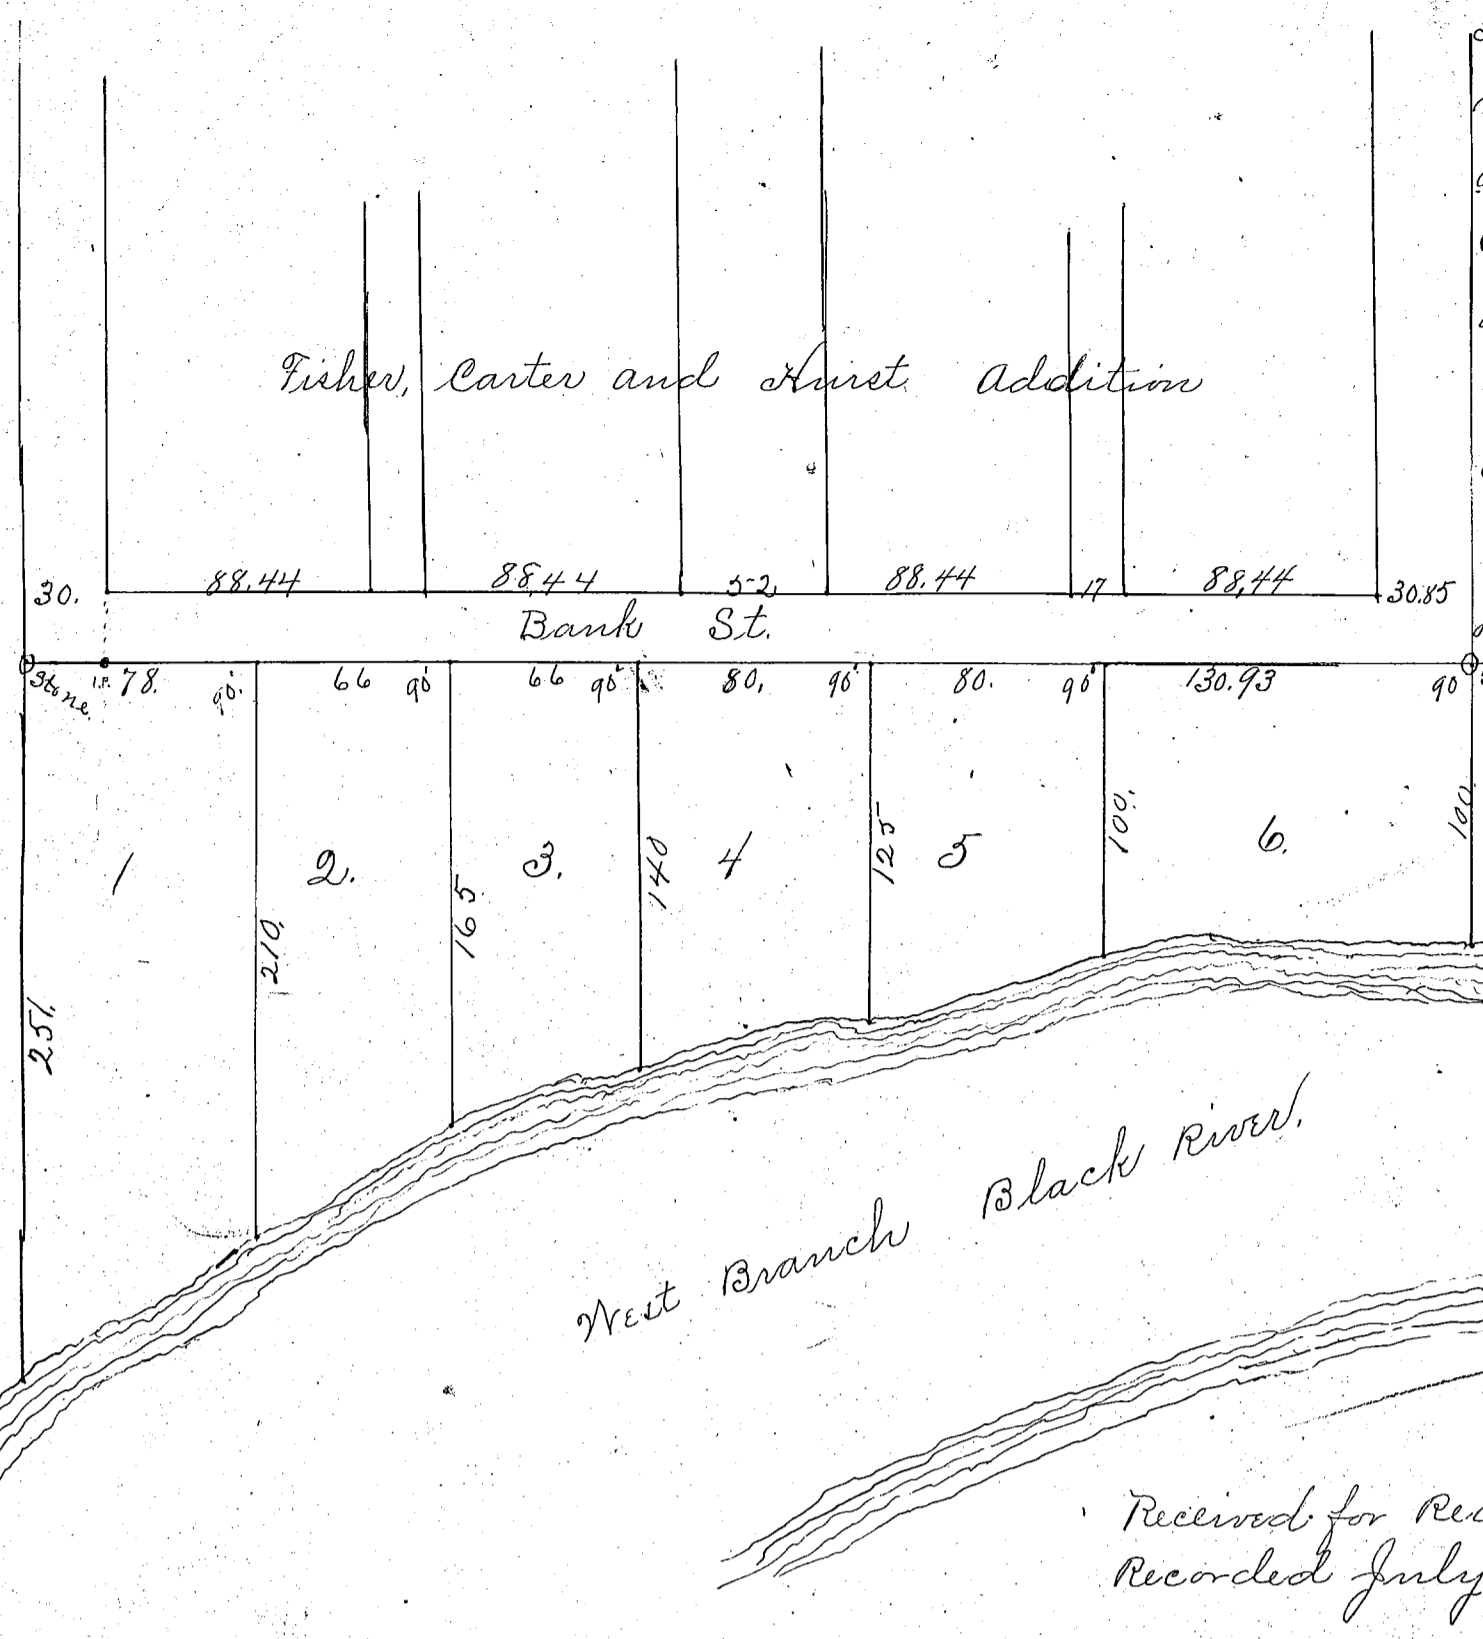 Fisher, Carter and Hurst Addition
30. 88.44 88.44 52 88.44 17 88.44 30.85
Bank St.
Stone. I.P. 78. 90° 66 90° 66 90° 80. 90° 80. 90° 130.93 90
1 2. 3. 4 5 6.
251. 210. 165 140 125 100. 100.
West Branch Black River.
Received for
Recorded July